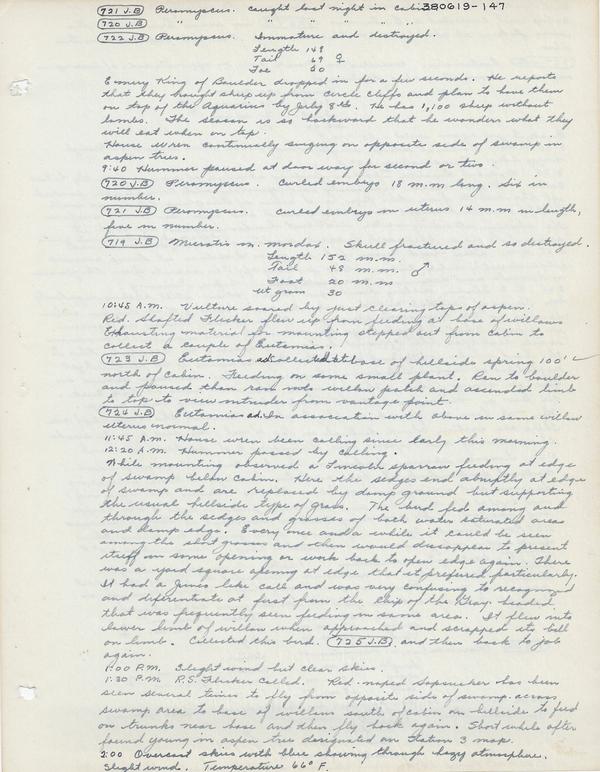 721 J.B Peromyscus. Caught last night in cabin 380619-147
720 J.B " " " " "
722 J.B Peromyscus. Immature and destroyed.
Length 148
Tail 69 ♀
Foot 20
Emery King of Boulder dropped in for a few seconds. He reports
that they brought sheep up from Circle Cliffs and plan to have them
on top of the Aquarius by July 8th. He has 1,100 sheep without
lambs. The season is so backward that he wonders what they
will eat when on top.
House Wren continually singing on opposite side of swamp in
aspen trees.
9:40 Hummer paused at door way for second or two.
720 J.B Peromyscus. Curled embryos 18 m.m long. Six in
number.
721 J.B Peromyscus. Curled embryos in uterus 14 m.m in length,
five in number.
719 J.B Microtis m. mordax. Skull fractured and so destroyed.
Length 152 m.m.
Tail 48 m.m. ♂
Foot 20 m.m
Wt gram 30
10:45 A.M. Vulture soared by just clearing tops of aspen.
Red. Shafted Flicker flew up from feeding at base of willows
Exhausting material for mounting stepped out from cabin to
collect a couple of Eutamias.
723 J.B Eutamias ad. collected at base of hillside spring 100'
north of Cabin. Feeding on some small plant. Ran to boulder
and paused then ran into willow patch and ascended limb
to top to view intruder from vantage point.
724 J.B Eutamias ad. In association with above in same willow
uterus normal.
11:45 A.M. House wren been calling since early this morning.
12:20 A.M. Hummer passed by calling.
While mounting observed a Lincoln sparrow feeding at edge
of swamp below cabin. Here the sedges end abruptly at edge
of swamp and are replaced by damp ground but supporting
the usual hillside type of grass. The bird fed among and
through the sedges and grasses of both water saturated area
and damp edge. Every once and a while it could be seen
among the grasses and then would dissappear to present
itself in some opening or work back to open edge again. There
was a yard square opening at edge that it preferred particularly.
It had a Junco like call and was very confusing to recognize
and diferentiate at first from the chip of the Gray. headed
that was frequently seen feeding in same area. It flew into
lower limb of willow when approached and scrapped its bill
on limb. Collected this bird. 725 J.B. and then back to job
again.
1:00 P.M. Slight wind but clear skies.
1:30 P.M. R.S. Flicker called. Red-naped Sapsucker has been
seen several times to fly from opposite side of swamp across
swamp area to base of willows south of cabin on hillside to feed
on trunks near base and then fly back again. Short while after
found young in aspen tree designated on Station 3 map.
2:00 Overcast skies with blue showing through hazy atmosphere.
Slight wind. Temperature 66° F.